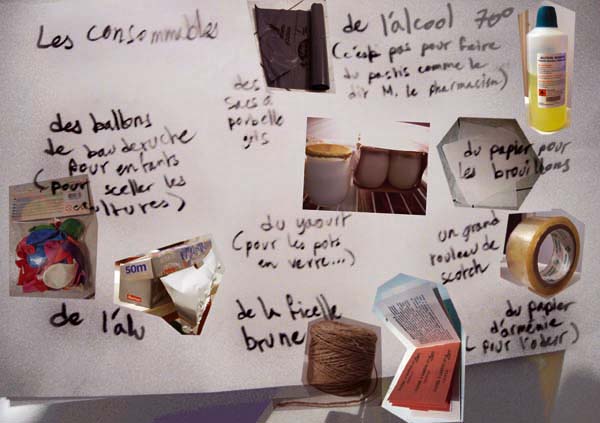 Les consommables
de l'alcool 70°
(c'est pas pour faire
du pastis comme le
dit M. le pharmacien)
des
sacs à
poubelle
gris
des ballons
de baudruche
pour enfants
(pour sceller les
cultures)
du papier pour
les brouillons
du yaourt
(pour les pots
en verre...)
un grand
rouleau de
scotch
50m
de l'alu
de la ficelle
brune
du papier
d'arménie
(pour l'odeur)